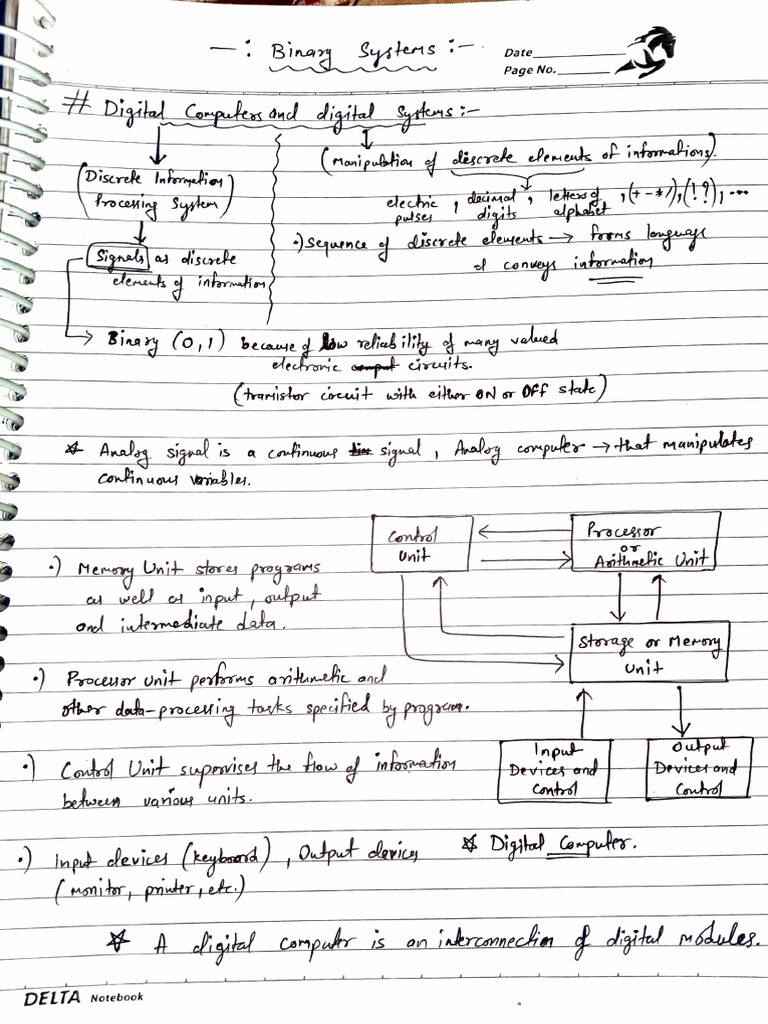 —: Binary Systems :—
Date
Page No.
# Digital Computers and digital Systems:—
(Discrete Information
Processing System)
Signals as discrete
elements of information
(Manipulation of discrete elements of informations).
electric pulses, decimal digits, letters of alphabet, (+ - * /), (! ?), ...
•) Sequence of discrete elements → forms language
& conveys information
→ Binary (0,1) because of low reliability of many valued
electronic circuits.
(transistor circuit with either ON or OFF state)
☆ Analog signal is a continuous signal, Analog computer → that manipulates
continuous variables.
Control
Unit
Processor
or
Arithmetic Unit
Storage or Memory
Unit
Input
Devices and
Control
Output
Devices and
Control
☆ Digital Computer.
•) Memory Unit stores programs
as well as input, output
and intermediate data.
•) Processor Unit performs arithmetic and
other data-processing tasks specified by program.
•) Control Unit supervises the flow of information
between various units.
•) Input devices (keyboard), Output devices
(monitor, printer, etc.)
☆ A digital computer is an interconnection of digital modules.
DELTA Notebook